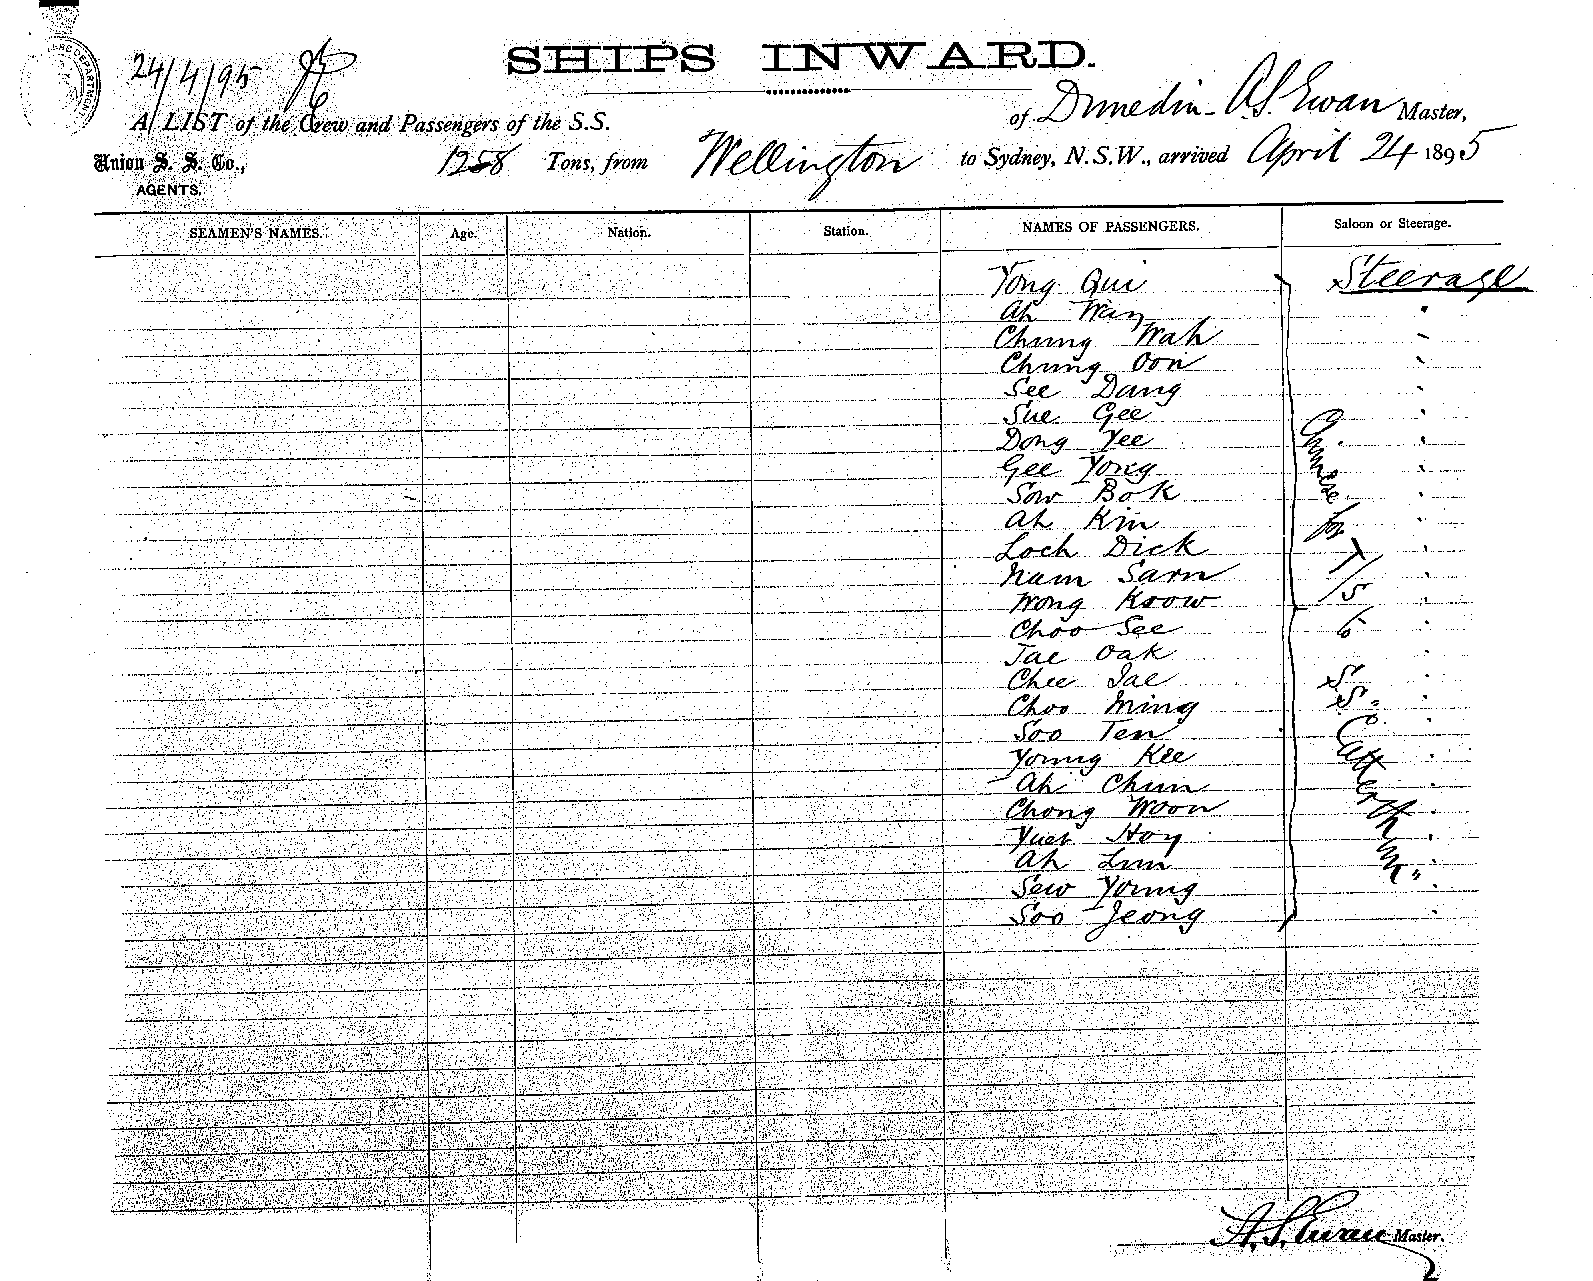 24/4/95
SHIPS INWARD.
A LIST of the Crew and Passengers of the S.S. of Dunedin - A.S. Ewan Master,
Union S. S. Co., 1258 Tons, from Wellington to Sydney, N.S.W., arrived April 24 1895
AGENTS.
SEAMEN'S NAMES. Age. Nation. Station. NAMES OF PASSENGERS. Saloon or Steerage.
Yong Qui Steerage
Ah Wan
Chung Wah
Chung Oon
See Dang
Sue Gee
Dong Yee
Gee Yong
Sow Bok
Ah Kin
Loch Dick
Num Sarn
Wong Koow
Choo See
Tae Oak
Chee Tae
Choo Ming
Soo Ten
Young Kee
Ah Chun
Chong Woon
Yuet Hoy
Ah Lun
Sew Young
Soo Jeong
Chinese for T/S
6
S.S. Catterthun
A.S. Ewan Master.